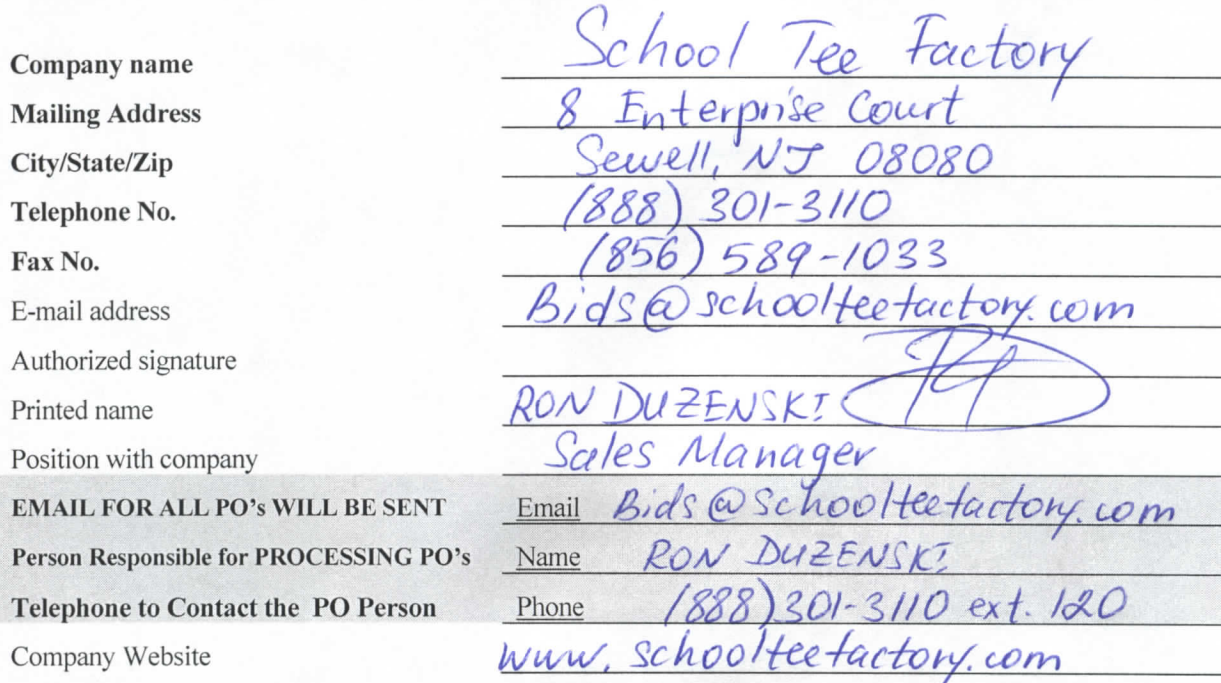 Company name School Tee Factory
Mailing Address 8 Enterprise Court
City/State/Zip Sewell, NJ 08080
Telephone No. (888) 301-3110
Fax No. (856) 589-1033
E-mail address Bids@schoolteefactory.com
Authorized signature
Printed name RON DUZENSKI
Position with company Sales Manager
EMAIL FOR ALL PO's WILL BE SENT Email Bids@schoolteefactory.com
Person Responsible for PROCESSING PO's Name RON DUZENSKI
Telephone to Contact the PO Person Phone (888)301-3110 ext. 120
Company Website www.schoolteefactory.com